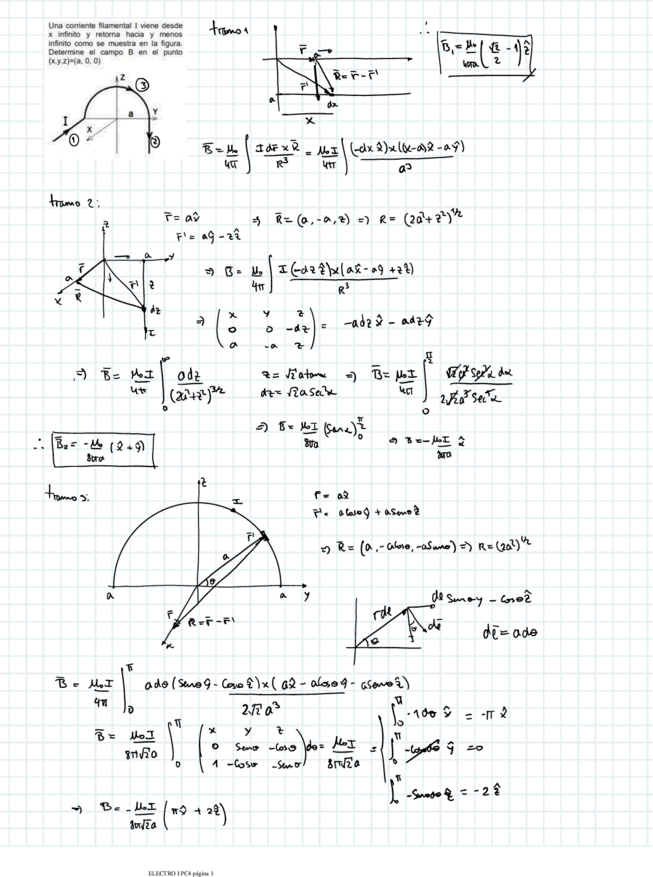 Una corriente filamental I viene desde
x infinito y retorna hacia y menos
infinito como se muestra en la figura.
Determine el campo B en el punto
(x,y,z)=(a, 0, 0)
Z
3
a
Y
I
X
1
2
tramo 1
r̄
a
R̄ = r̄ - r̄'
r̄'
a
dx
x
∴ B̄₁ = μ₀/4πa (√2/2 - 1) ẑ
B̄ = μ₀/4π ∫ I dr̄ × R̄ / R³ = μ₀I/4π ∫ (-dx x̂)×((x-a)x̂ - aŷ) / a³
tramo 2:
r̄ = ax̂ ⇒ R̄ = (a, -a, z) ⇒ R = (2a²+z²)^1/2
r̄' = aŷ - zẑ
z
a
y
r̄
a
r̄'
z
x
R̄
dz
I
⇒ B = μ₀/4π ∫ I(-dz ẑ)×(ax̂ - aŷ + zẑ) / R³
⇒ ( x y z
0 0 -dz
a -a z ) = -adz x̂ - adz ŷ
⇒ B̄ = μ₀I/4π ∫₀^∞ adz / (2a²+z²)^3/2
z = √2 a tanα
dz = √2 a Sec²α
⇒ B̄ = μ₀I/4π ∫₀^π/2 √2 a² Sec²α dα / 2√2 a³ Sec³α
⇒ B = μ₀I/8πa (Senα)₀^π/2 ⇒ B = -μ₀I/8πa x̂
∴ B̄₂ = -μ₀/8πa (x̂ + ŷ)
tramo 3:
z
I
r̄'
a
θ
a
a
y
r̄
R = r̄ - r̄'
x
r = ax̂
r̄' = aCosθŷ + aSenθẑ
⇒ R̄ = (a, -aCosθ, -aSenθ) ⇒ R = (2a²)^1/2
dθ Senθy - Cosθẑ
rdθ
dℓ̄
θ
θ
dℓ̄ = adθ
B̄ = μ₀I/4π ∫₀^π adθ(Senθŷ - Cosθẑ)×(ax̂ - aCosθŷ - aSenθẑ) / 2√2 a³
B̄ = μ₀I/8π√2a ∫₀^π ( x y z
0 Senθ -Cosθ
1 -Cosθ -Senθ ) dθ = μ₀I/8π√2a =
∫₀^π -1dθ x̂ = -π x̂
∫₀^π -Cosθdθ ŷ = 0
∫₀^π -Senθdθ ẑ = -2 ẑ
⇒ B = -μ₀I/8π√2a (πx̂ + 2ẑ)
ELECTRO I PC4 página 1